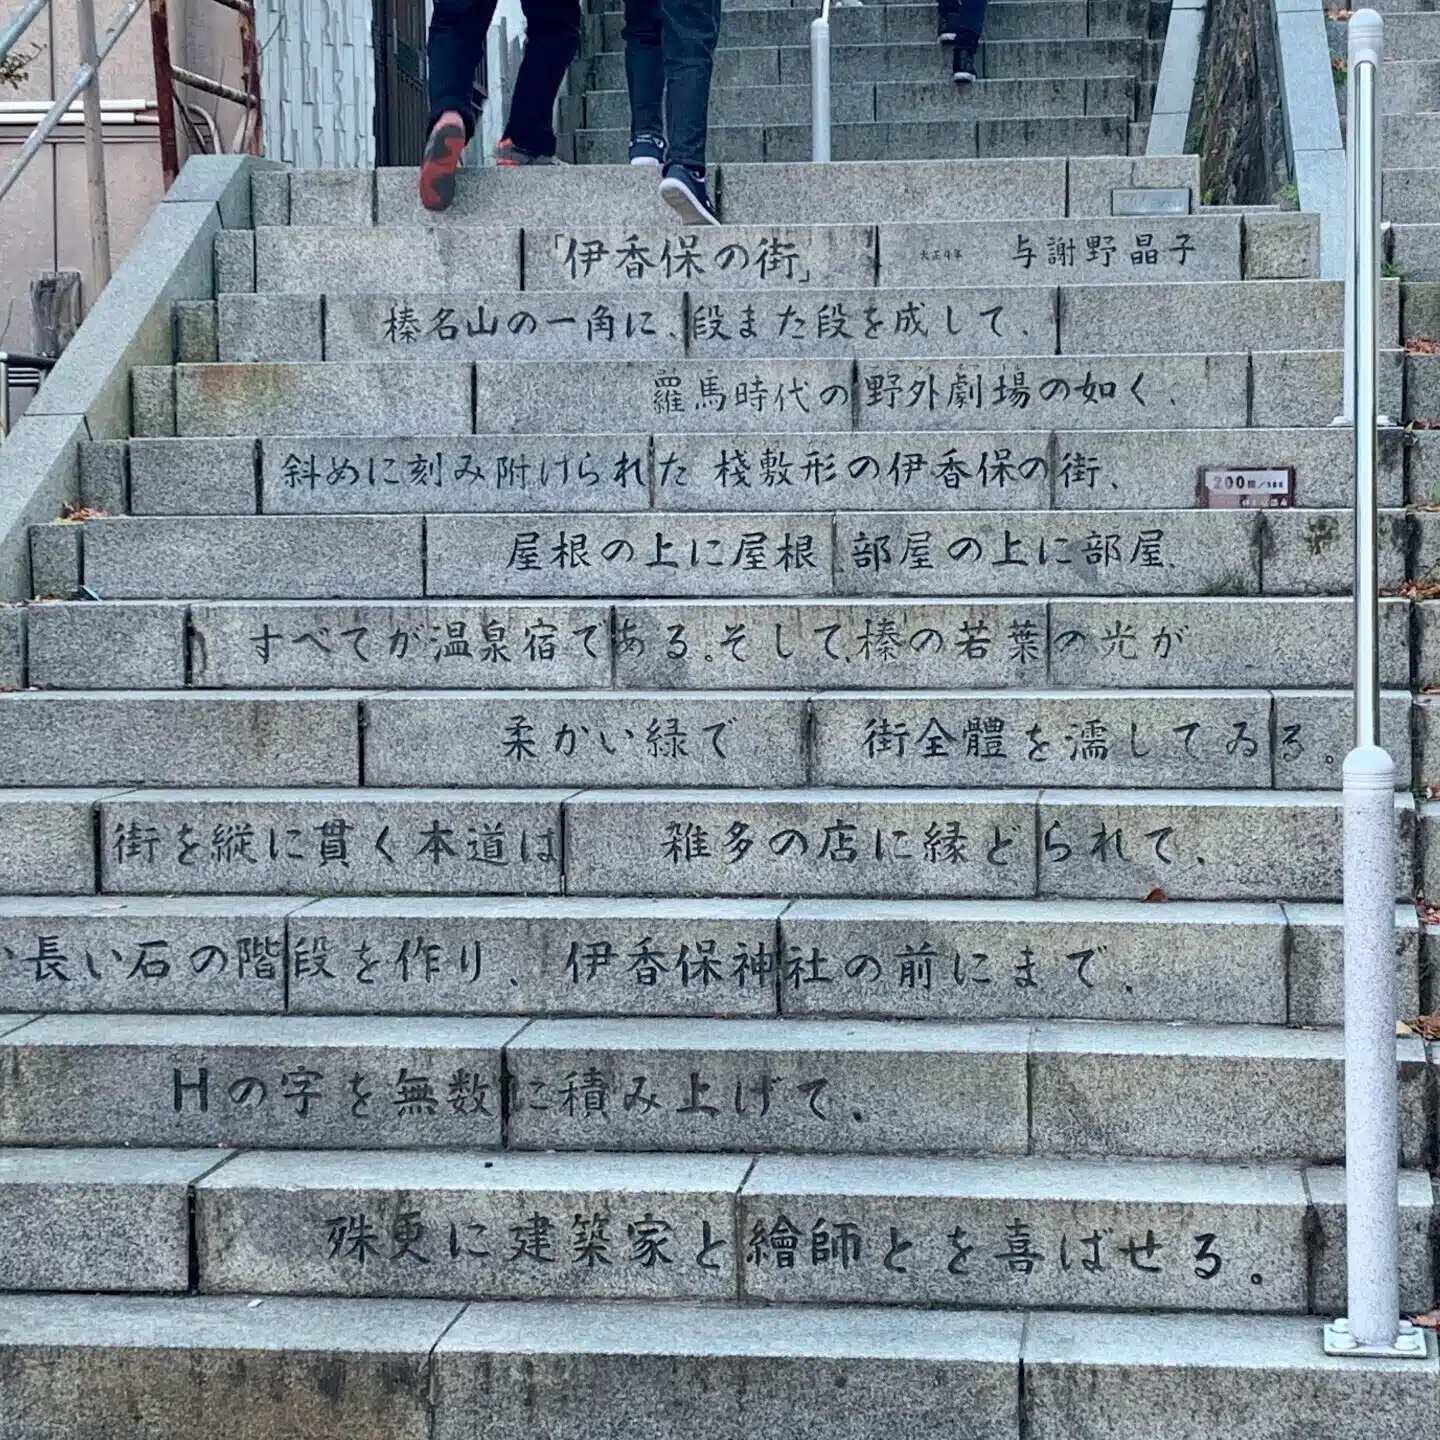 「伊香保の街」 大正4年 与謝野晶子
榛名山の一角に、段また段を成して、
羅馬時代の野外劇場の如く、
斜めに刻み附けられた 棧敷形の伊香保の街、
200段/
屋根の上に屋根、部屋の上に部屋、
すべてが温泉宿である。そして、榛の若葉の光が
柔かい緑で 街全體を濡してゐる。
街を縦に貫く本道は 雑多の店に縁どられて、
長い石の階段を作り、伊香保神社の前にまで、
Hの字を無数に積み上げて、
殊更に建築家と繪師とを喜ばせる。